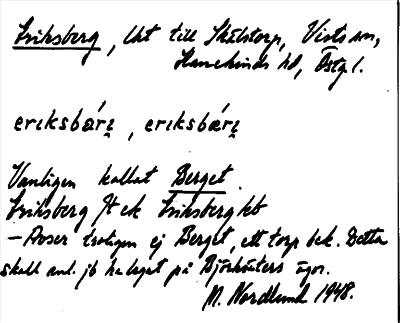 Eriksberg, lht till Skälstorp, Vists sn,
Hanekinds hd, Östg l.
eriksbærị, eriksbærị
Vanligen kallat Berget.
Eriksberg Jt ek Eriksberg kb
— Avser troligen ej Berget, ett torp bek. Detta
skall anl. jb ha legat på Björksäters ägor.
M. Nordlund 1948.